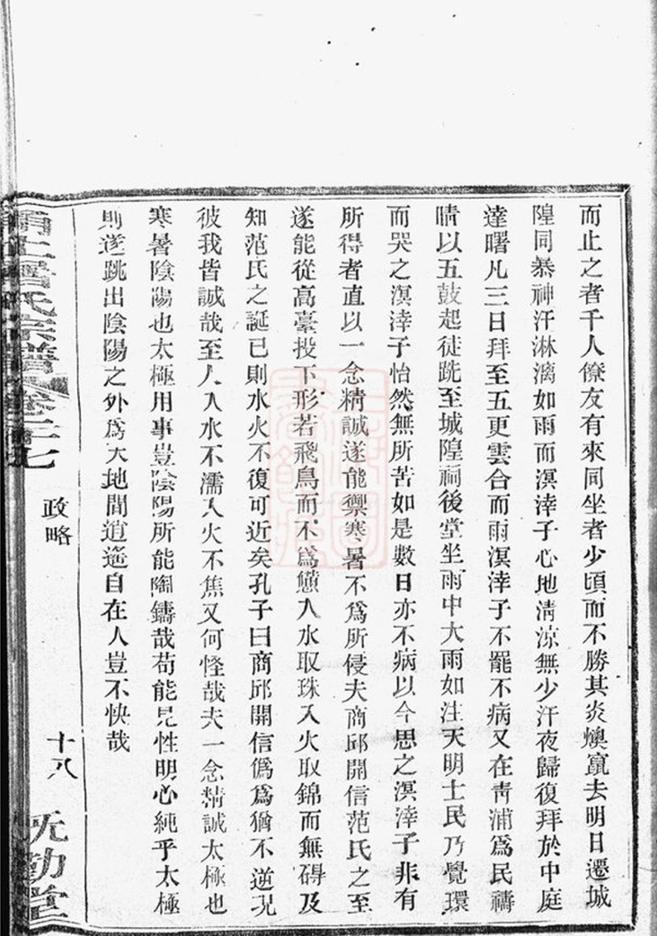 而止之者千人僚友有來同坐者少頃而不勝其炎燠竄去明日遷城
隍同暴神汗淋漓如雨而溟涬子心地清涼無少汗夜歸復拜於中庭
達曙凡三日拜至五更雲合而雨溟涬子不罷不病又在青浦爲民禱
晴以五鼓起徒跣至城隍祠後堂坐雨中大雨如注天明士民乃覺環
而哭之溟涬子怡然無所苦如是數日亦不病以今思之溟涬子非有
所得者直以一念精誠遂能禦寒暑不爲所侵夫商邱開信范氏之至
遂能從高臺投下形若飛鳥而不爲䃣入水取珠入火取錦而無碍及
知范氏之誕已則水火不復可近矣孔子曰商邱開信僞爲猶不逆况
彼我皆誠哉至人入水不濡入火不焦又何怪哉夫一念精誠太極也
寒暑陰陽也太極用事豈陰陽所能陶鑄哉苟能見性明心純乎太極
則遂跳出陰陽之外爲天地間逍遙自在人豈不快哉
氏宗譜 卷二十七
政略
十八
既勤堂